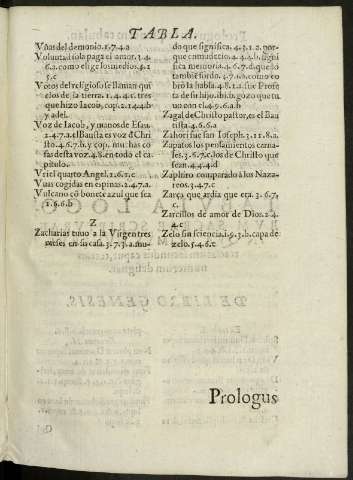 TABLA.
Vñas del demonio.1.7.4.a
Voluntad sola paga el amor.3.4.
6.a.como elige los medios.4.1.2
5.c
Votos del religioso se llaman qui
cios de la tierra.1.4.4.c. tres
que hizo Iacob, cop.2.1.4.4.b
y adel.
Voz de Iacob, y manos de Esau.
2.4.7.a.el Bautista es voz d̃ Chri
sto.4.6.7.b.y cop. muchas co
sas desta voz.4.8.en todo el ca
pitulo.
Vriel quarto Angel.2.6.2.c
Vuas cogidas en espinas.2.4.7.a
Vulcano cõ bonete azul que sea
1.6.6.b
Z
Zacharias tuuo a la Virgen tres
meses en su casa.3.7.3.a.mu-
do que significa.4.3.1.a. por-
que enmudecio.4.3.4.b. signi
fica memoria.4.6.7.d. quedo
tambiẽ sordo.4.7.6.a.como co
brò la habla.4.8.1.a.fue Profe
ta de su hijo.ibi.b.gozo que tu
uo con el.4.9.6.a.b
Zagal de Christo pastor, es el Bau
tista.4.6.6.a
Zahori fue san Ioseph.3.11.8.a
Zapatos los pensamientos carna-
les.3.6.7.c.los de Christo que
sean.4.4.4.d
Zaphiro comparado à los Naza-
reos.3.4.7.c
Zarça que ardia que era.3.6.7.
c
Zarcillos de amor de Dios.2.4.
4.c
Zelo sin sciencia.1.9.3.b.capa de
zelo.5.4.6.c
Prologus